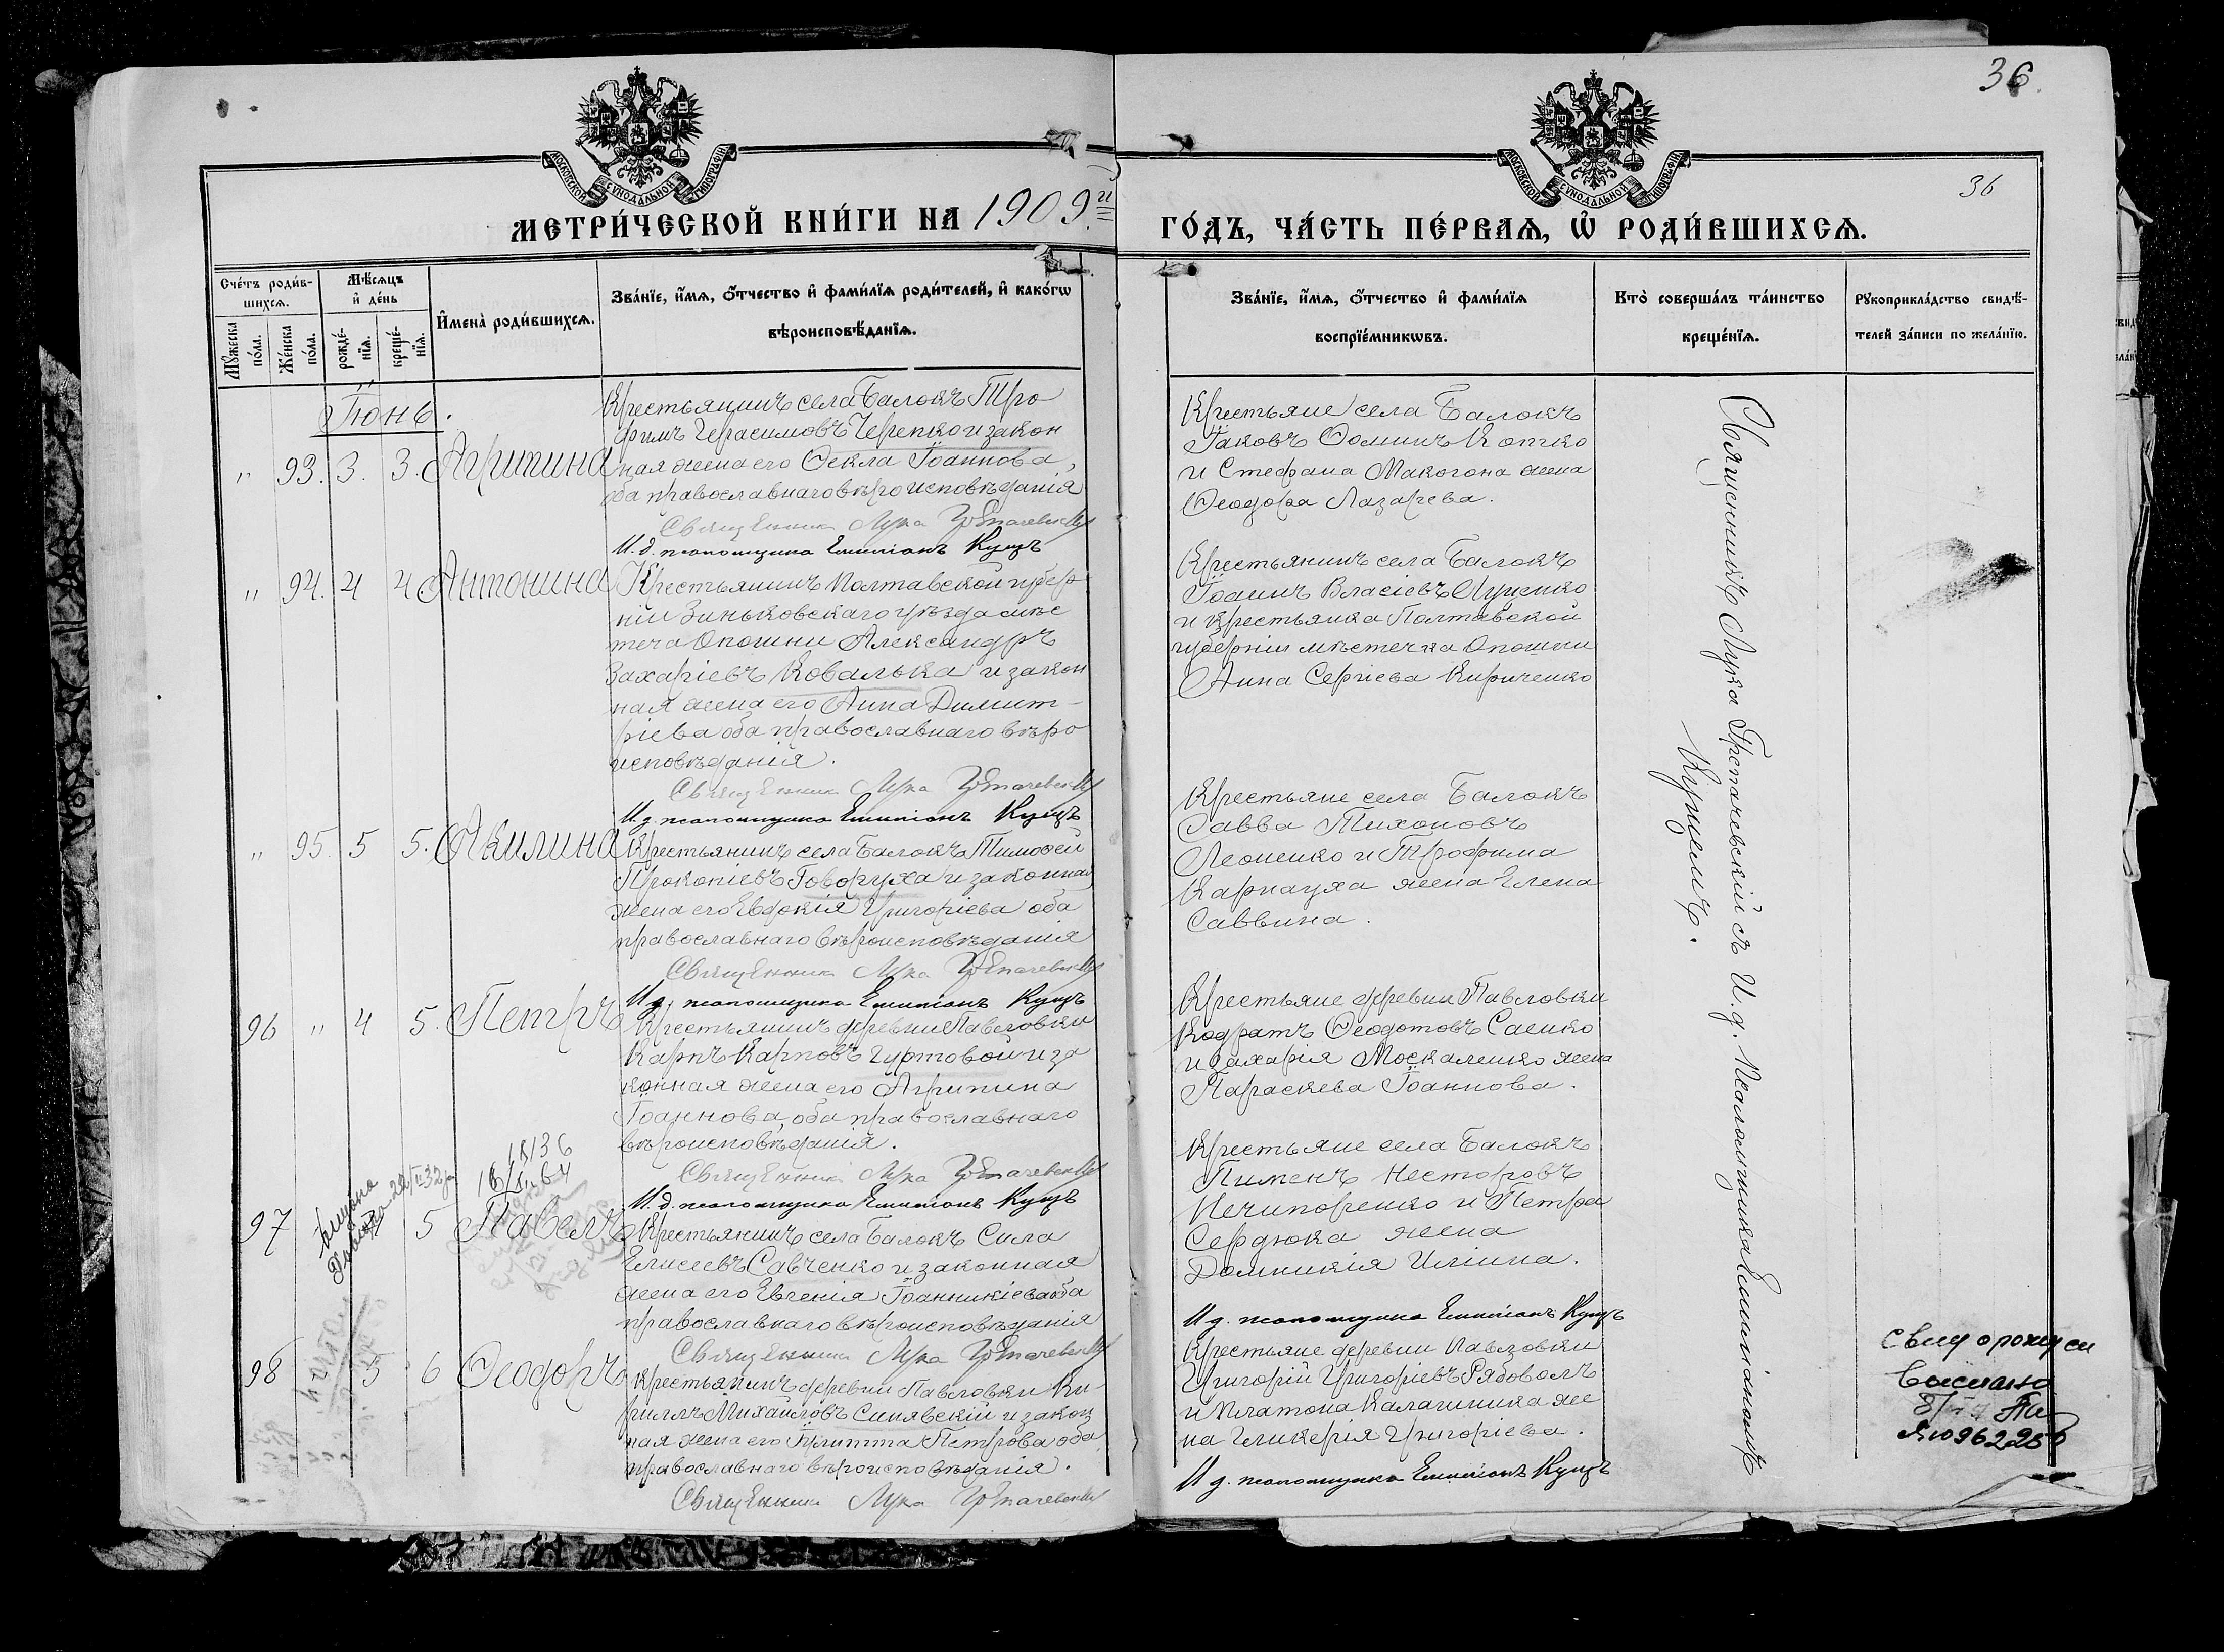 36
МОСКОВСКОЙ СѴНОДАЛЬНОЙ ТИПОГРАФІИ
МОСКОВСКОЙ СѴНОДАЛЬНОЙ ТИПОГРАФІИ
36
МЕТРИ́ЧЕСКОЙ КНИ́ГИ НА 1909.й ГО́ДЪ, ЧА́СТЬ ПЕ́РВАѦ, Ѽ РОДИ́ВШИХСѦ.
Сче́тъ роди́в-
шихсѧ.
Мꙋжеска по́ла.
Же́нска по́ла.
Мѣ́сѧцъ
и҆ де́нь
рожде́-
нїѧ.
креще́-
нїѧ.
И҆мена̀ роди́вшихсѧ.
Зва́нїе, и҆́мѧ, ѻ҆́тчество и҆ фами́лїѧ роди́телей, и҆ како́гѡ
вѣроисповѣ́данїѧ.
Зва́нїе, и҆́мѧ, ѻ҆́тчество и҆ фами́лїѧ
воспрїе́мникѡвъ.
Кто̀ соверша́лъ та́инство
креще́нїѧ.
Рꙋкоприкла́дство свидѣ́-
телей за́писи по жела́нїю.
Іюнь.
" 93. 3. 3. Агрипина
Крестьянинъ села Балокъ Тро
фимъ Герасимовъ Черепко и закон
ная жена его Ѳекла Іоаннова,
оба православнаго вѣроисповѣданія
Священник Лука
И. д. псаломщика Емиліанъ Кущъ
Крестьяне села Балокъ
Іаковъ Ѳоминъ Копко
и Стефана Макогона жена
Ѳеодора Лазарева.
" 94. 4 4 Антонина
Крестьянинъ Полтавской губер
ніи Зиньковскаго уѣзда мѣс
теча Опошни Александръ
Захаріевъ Ковалька и закон
ная жена его Анна Димит-
ріева оба православнаго вѣро
исповѣданія.
Священник Лука
И. д. псаломщика Емиліанъ Кущъ
Крестьянинъ села Балокъ
Іоаннъ Власіевъ Луценко
и крестьянка Полтавской
губерніи мѣстечка Опошни
Анна Сергіева Кириченко
" 95. 5 5. Акилина
Крестьянинъ села Балокъ Тимоѳей
Прокопіевъ Говоруха и законная
жена его Евдокія Григоріева оба
православнаго вѣроисповѣданія
Священник Лука
И д. псаломщика Емиліанъ Кущъ
Крестьяне села Балокъ
Савва Тихоновъ
Леоненко и Трофима
Карнауха жена Елена
Саввина.
96 " 4 5. Петръ
Крестьянинъ деревни Павловки
Карпъ Карповъ Гуртовой и за
конная жена его Агрипина
Іоаннова, оба православнаго
вѣроисповѣданія.
Священник Лука
И. д. псаломщика Емиліанъ Кущъ
Крестьяне деревни Павловки
Кодратъ Ѳеодотовъ Саенко
и Захарія Москаленко жена
Параскева Іоаннова.
97 5 Павелъ
Крестьянинъ села Балокъ Сила
Елисеевъ Савченко и законная
жена его Евгенія Іоанникіева оба
православнаго вѣроисповѣданія
Священник Лука
Крестьяне села Балокъ
Пименъ Несторовъ
Нечипоренко и Петра
Сердюка жена
Домникія Иліина.
И д. псаломщика Емиліанъ Кущъ
98 5 6 Ѳеодоръ
Крестьянинъ деревни Павловки Ки-
риллъ Михайловъ Синявскій и закон
ная жена его Іулитта Петрова оба
православнаго вѣроисповѣданія.
Священник Лука
Крестьяне деревни Павловки
Григорій Григоріевъ Рябоволъ
и Платона Калашника же
на Гликерія Григоріева.
И д. псаломщика Емиліанъ Кущъ
Священникъ Лука Гретачевскій съ И. д. Псаломщика Емиліаномъ
Кущемъ.